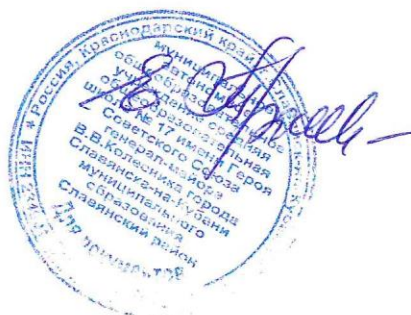 Россия, Краснодарский край
муниципальное
автономное
общеобразовательное
учреждение средняя
общеобразовательная
школа № 17 имени Героя
Советского Союза
генерал-майора
В.В.Колесника города
Славянска-на-Кубани
муниципального
образования
Славянский район
Для документов